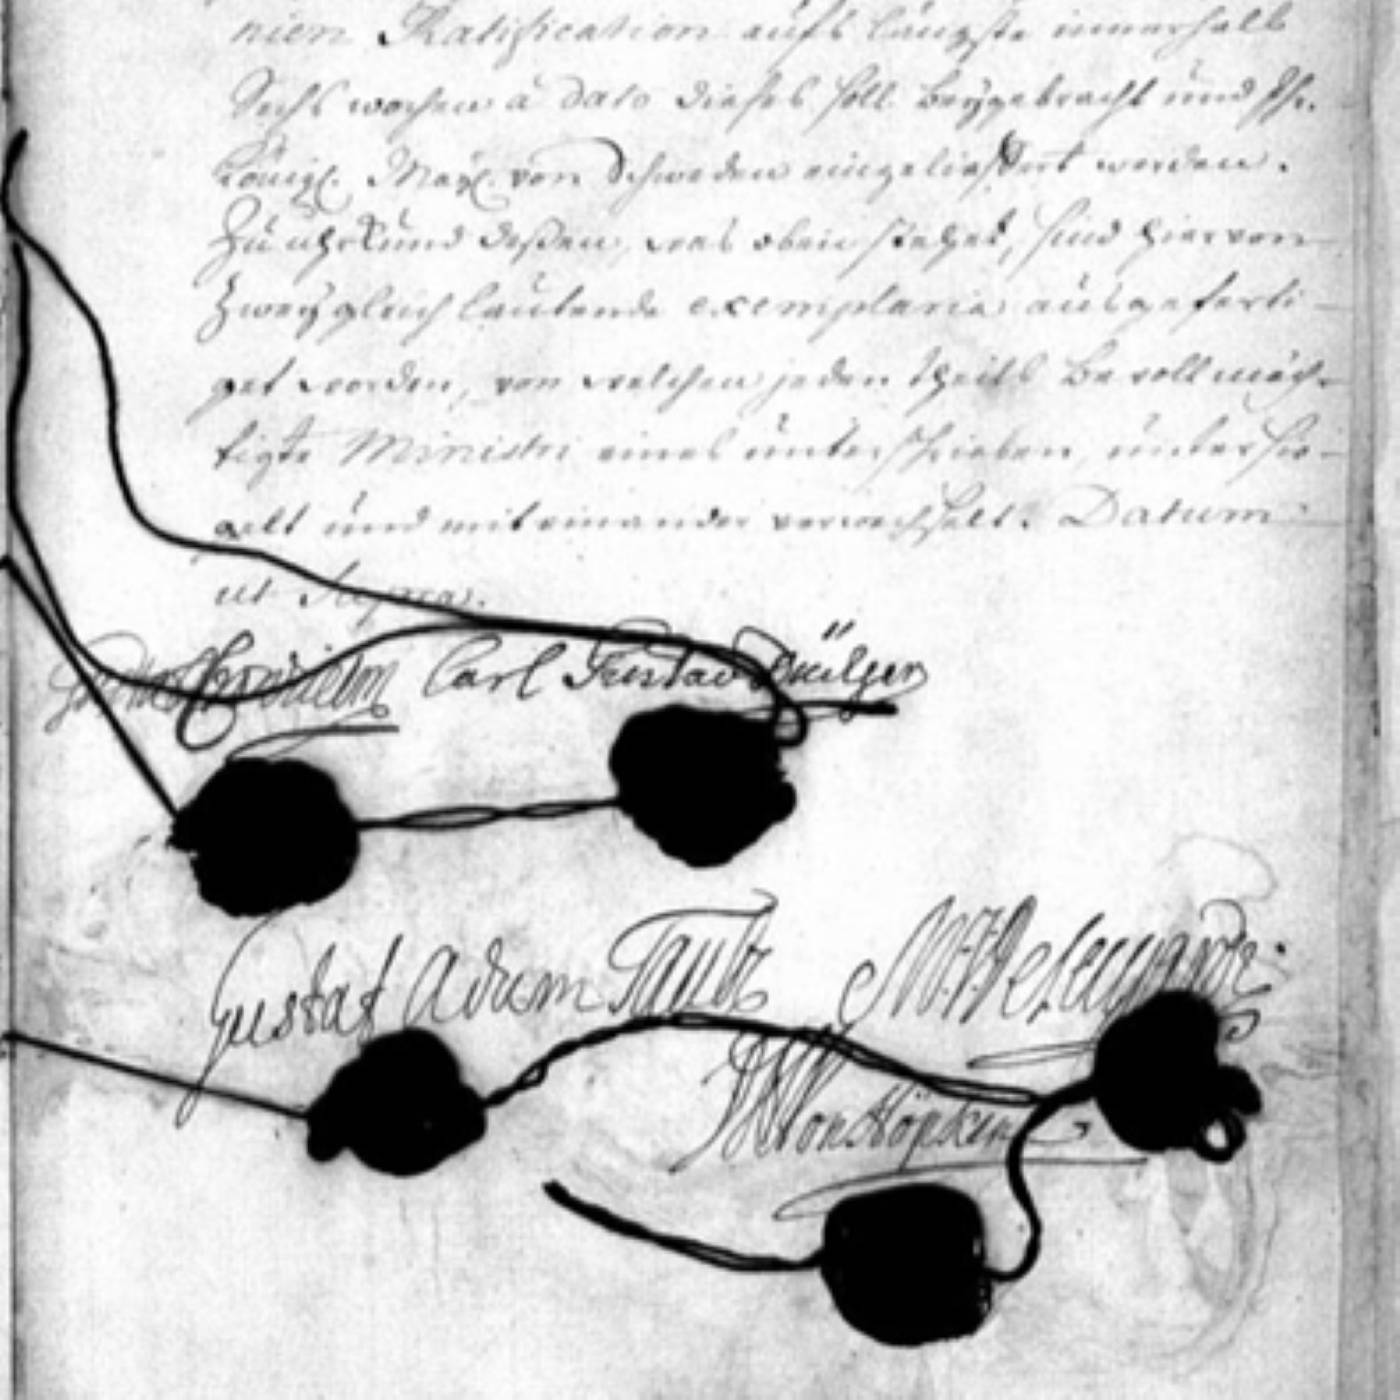 nien Ratification aufs längste innerhalb
Sechs wochen a dato dieses soll beygebracht und Ihr.
Königl. Maÿt. von Schweden eingelieffert werden.
Zu uhrkund deßen, was oben stehet, sind hiervon
Zwey gleich lautende exemplaria ausgeferti-
get worden, von welchen jeden theils Bevollmäch-
tigte Ministri eines unterschrieben, untersie-
gelt und mit einander verwechselt. Datum
ut Supra.
Carl Gustav Bülger
Gustaf Adam Taube
von Höpken